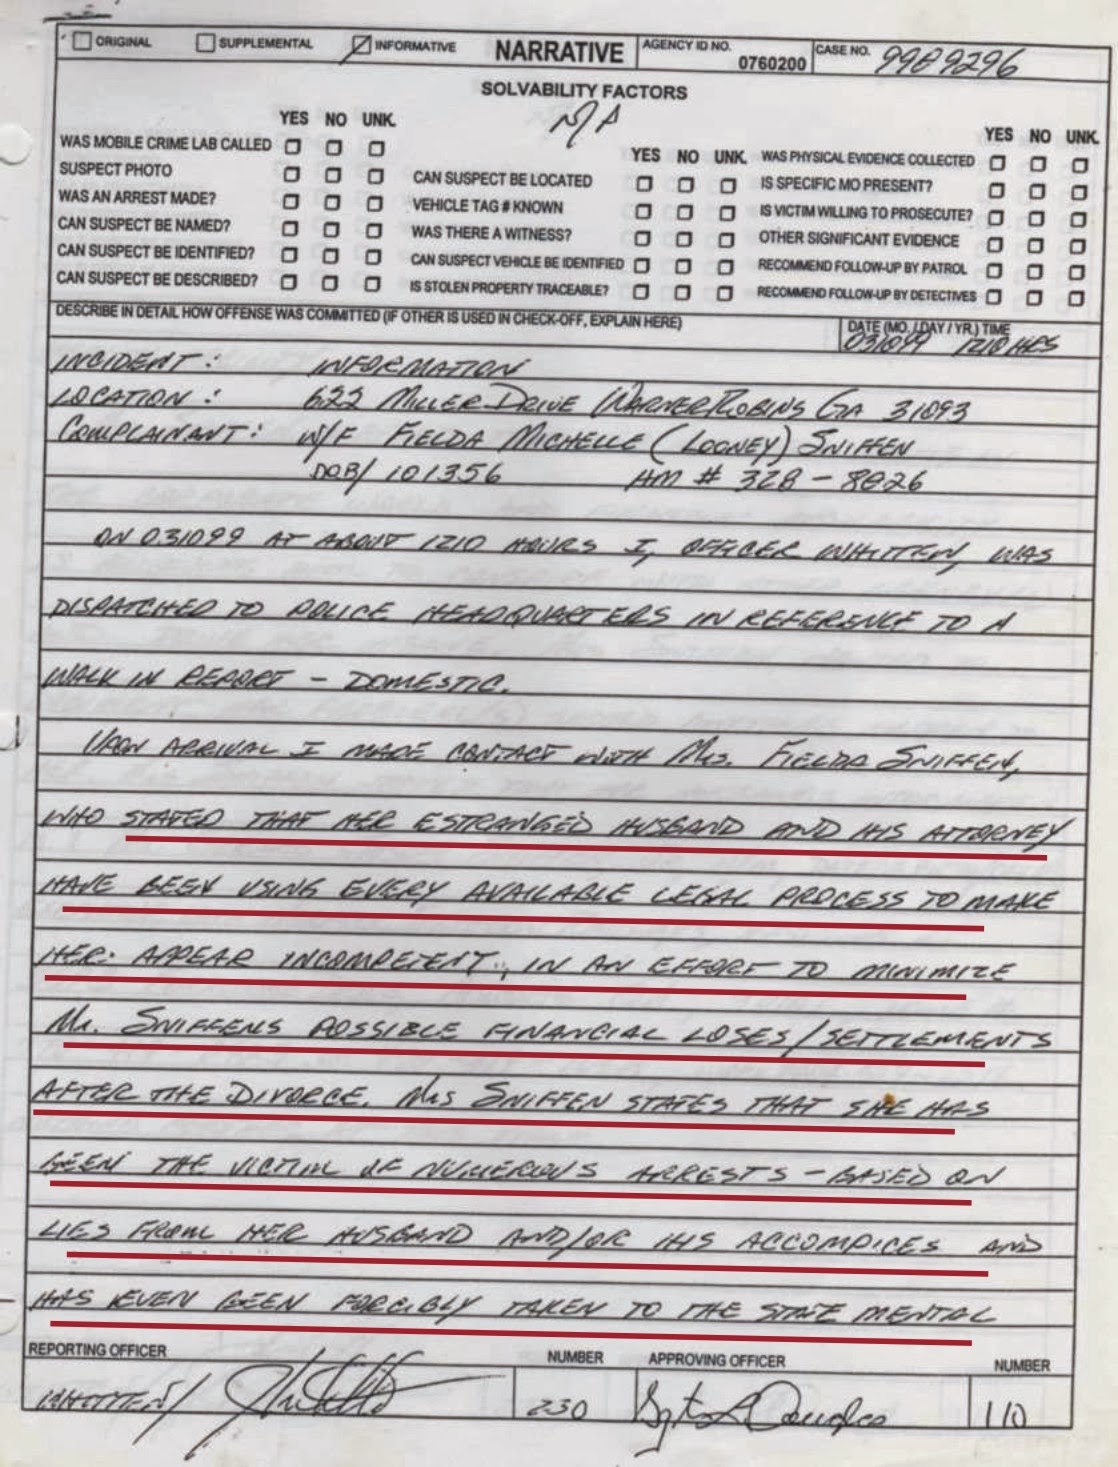 ORIGINAL SUPPLEMENTAL INFORMATIVE NARRATIVE AGENCY ID NO. 0760200 CASE NO. 9909296
SOLVABILITY FACTORS
N/A
YES NO UNK.
WAS MOBILE CRIME LAB CALLED
SUSPECT PHOTO
WAS AN ARREST MADE?
CAN SUSPECT BE NAMED?
CAN SUSPECT BE IDENTIFIED?
CAN SUSPECT BE DESCRIBED?
YES NO UNK.
CAN SUSPECT BE LOCATED
VEHICLE TAG # KNOWN
WAS THERE A WITNESS?
CAN SUSPECT VEHICLE BE IDENTIFIED
IS STOLEN PROPERTY TRACEABLE?
YES NO UNK.
WAS PHYSICAL EVIDENCE COLLECTED
IS SPECIFIC MO PRESENT?
IS VICTIM WILLING TO PROSECUTE?
OTHER SIGNIFICANT EVIDENCE
RECOMMEND FOLLOW-UP BY PATROL
RECOMMEND FOLLOW-UP BY DETECTIVES
DESCRIBE IN DETAIL HOW OFFENSE WAS COMMITTED (IF OTHER IS USED IN CHECK-OFF, EXPLAIN HERE)
DATE (MO. / DAY / YR.) TIME
031099 1210 HRS
INCIDENT: INFORMATION
LOCATION: 622 MILLER DRIVE WARNER ROBINS GA 31093
COMPLAINANT: W/F FIELDA MICHELLE (LOONEY) SNIFFEN
DOB/ 101356 HM # 328-8826
ON 031099 AT ABOUT 1210 HOURS I, OFFICER WHITTEN, WAS
DISPATCHED TO POLICE HEADQUARTERS IN REFERENCE TO A
WALK IN REPORT - DOMESTIC.
UPON ARRIVAL I MADE CONTACT WITH Mrs. FIELDA SNIFFEN,
WHO STATED THAT HER ESTRANGED HUSBAND AND HIS ATTORNEY
HAVE BEEN USING EVERY AVAILABLE LEGAL PROCESS TO MAKE
HER APPEAR INCOMPETENT, IN AN EFFORT TO MINIMIZE
Mr. SNIFFENS POSSIBLE FINANCIAL LOSES/SETTLEMENTS
AFTER THE DIVORCE. Mrs SNIFFEN STATES THAT SHE HAS
BEEN THE VICTIM OF NUMERIOUS ARRESTS - BASED ON
LIES FROM HER HUSBAND AND/OR HIS ACCOMPICES AND
HAS EVEN BEEN FORCIBLY TAKEN TO THE STATE MENTAL
REPORTING OFFICER NUMBER APPROVING OFFICER NUMBER
WHITTEN/ 230 Sgt A Douglas 110